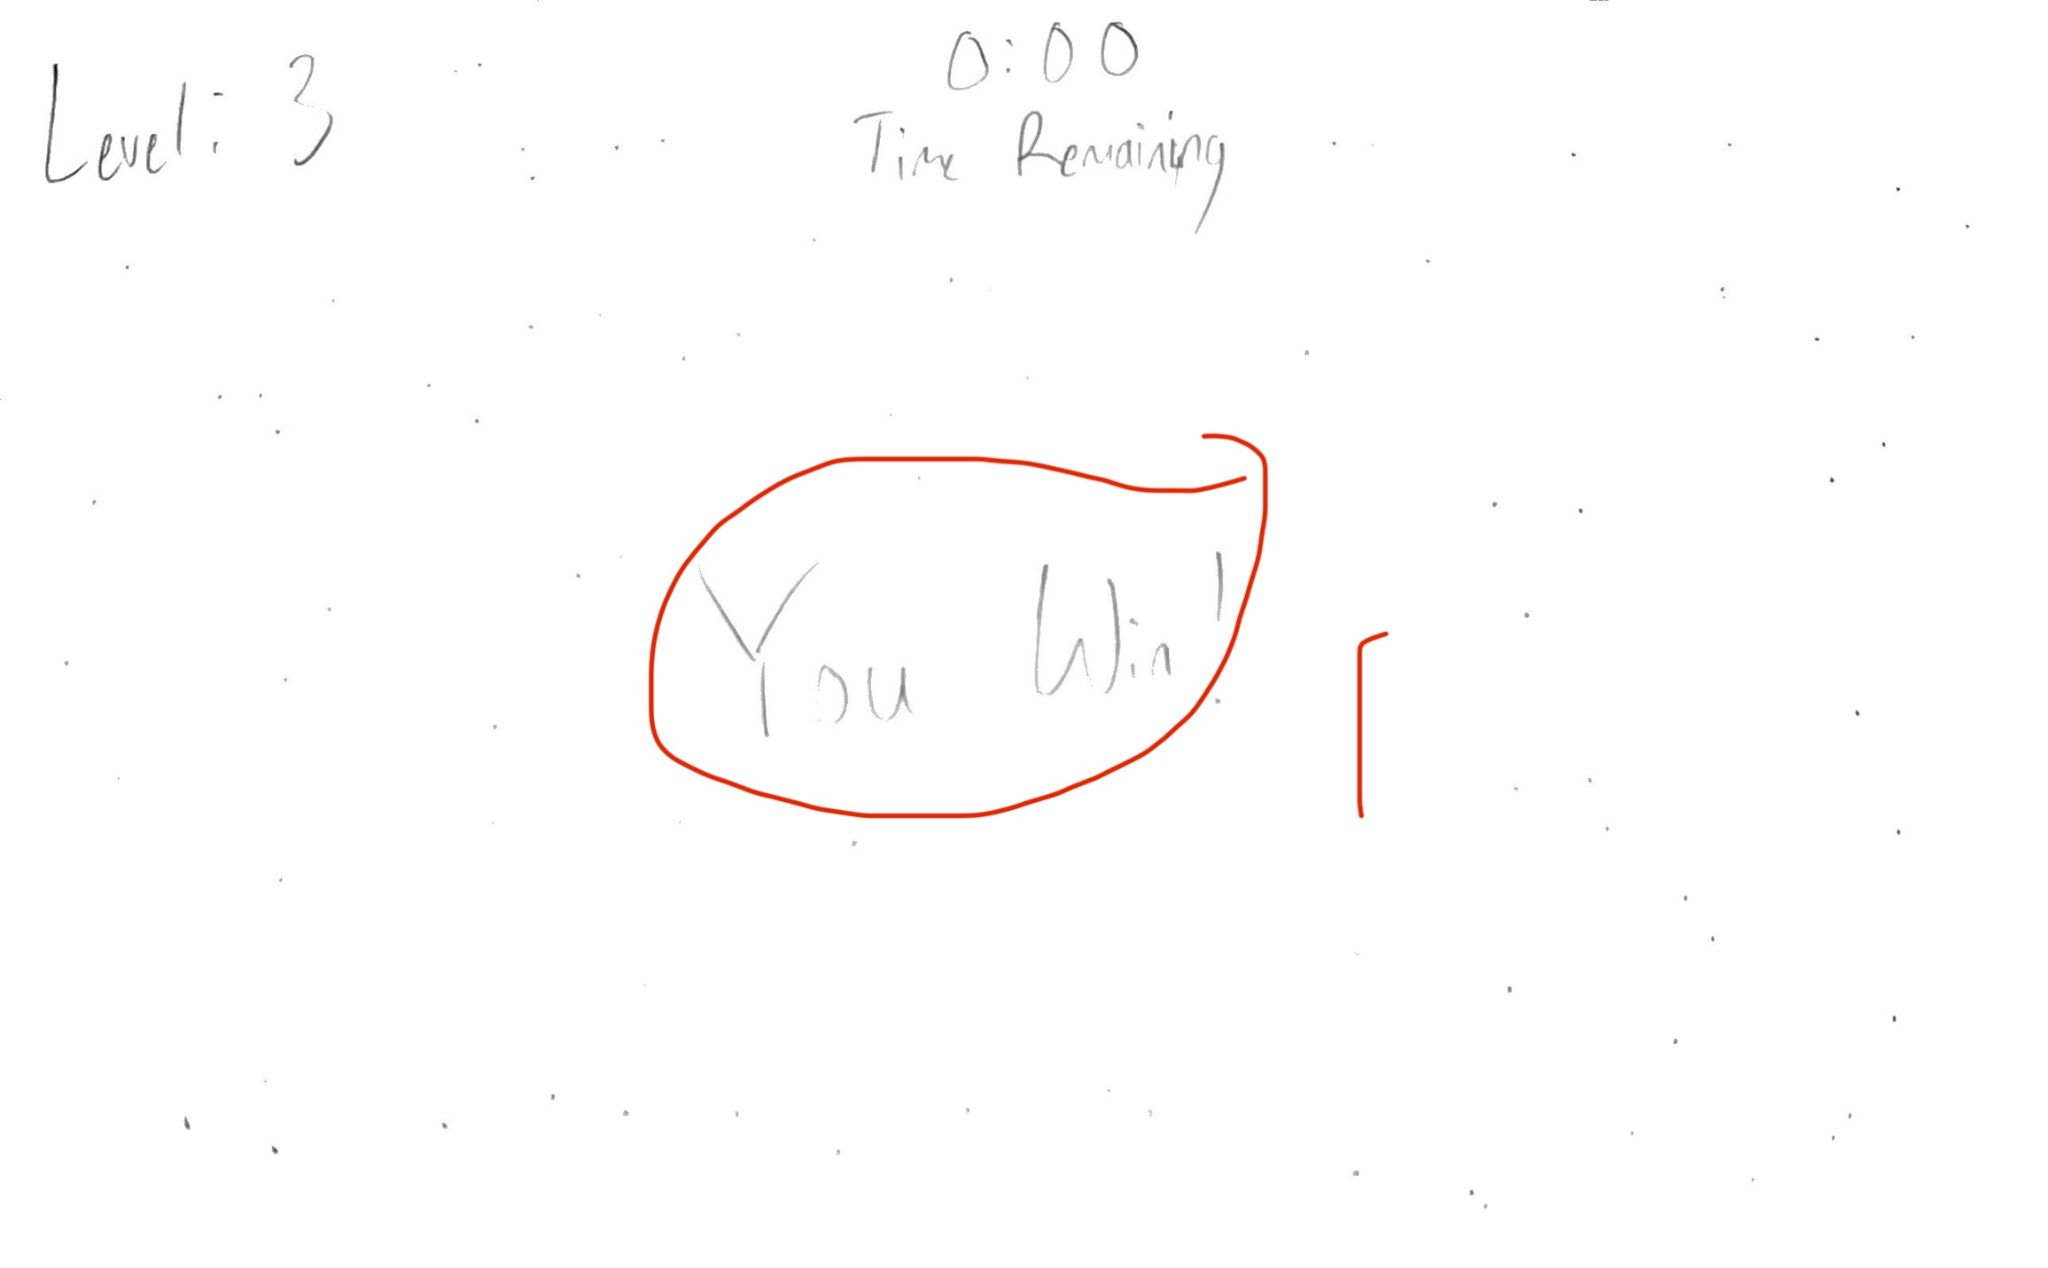 Level: 3
0:00
Time Remaining
You Win!